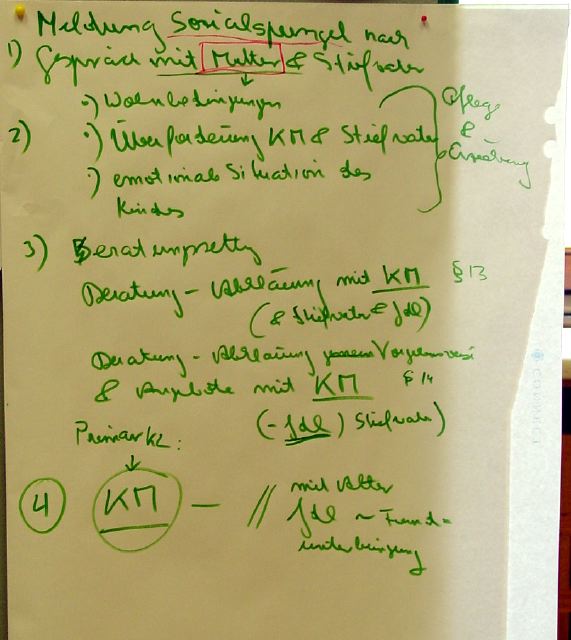 Meldung Sozialsprengel nach
1) Gespräch mit Mutter & Stiefvater
·) Wohnbedingungen
2) ·) Überforderung KM & Stiefvater
·) emotionale Situation des
Kindes
Pflege
&
Erziehung
3) Beratungssetting
Beratung - Abklärung mit KM § 13
(& Stiefvater & Jdl)
Beratung - Abklärung
& Angebote mit KM § 14
(- Jdl) Stiefvater)
Primär KL:
4 KM — // mit Alter
Jdl ~ Fremd=
unterbringung